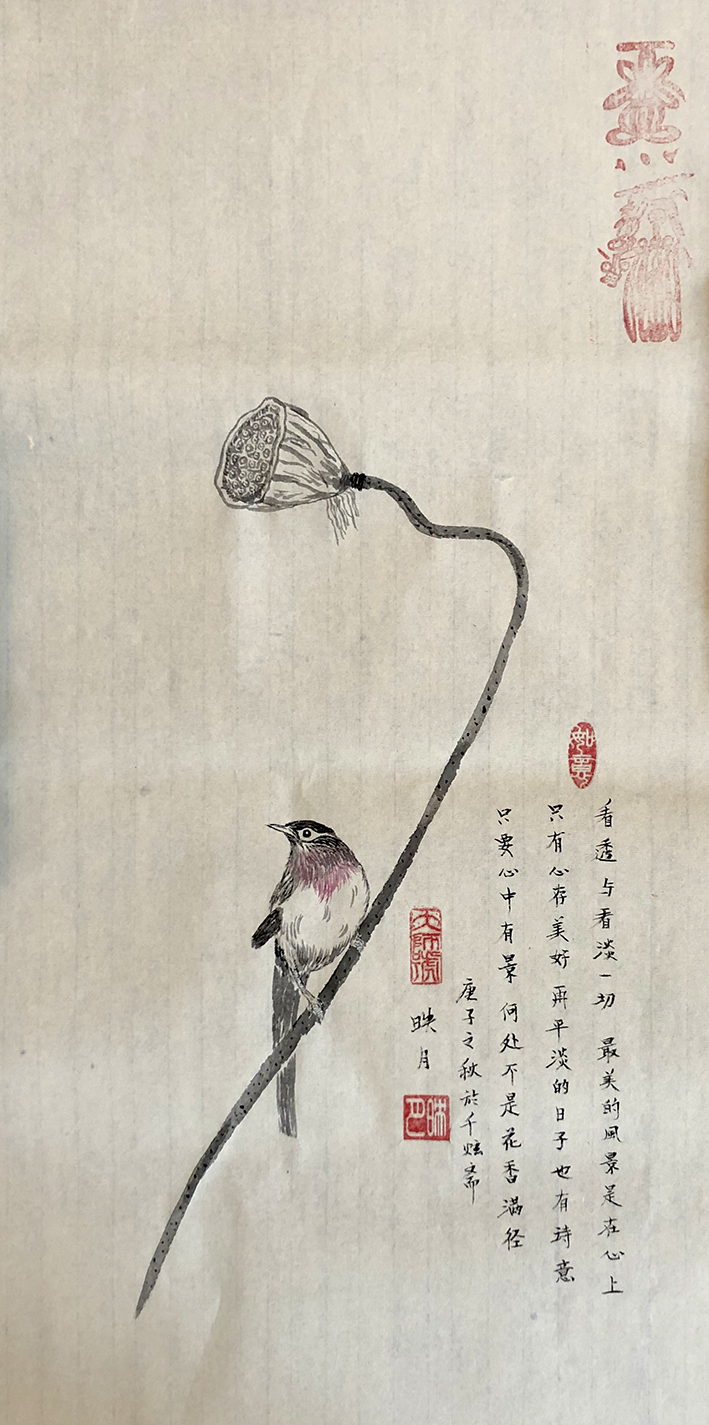 如意
看透与看淡一切 最美的风景是在心上
只有心存美好 再平淡的日子也有诗意
只要心中有景 何处不是花香满径
庚子之秋於千炫斋
映月